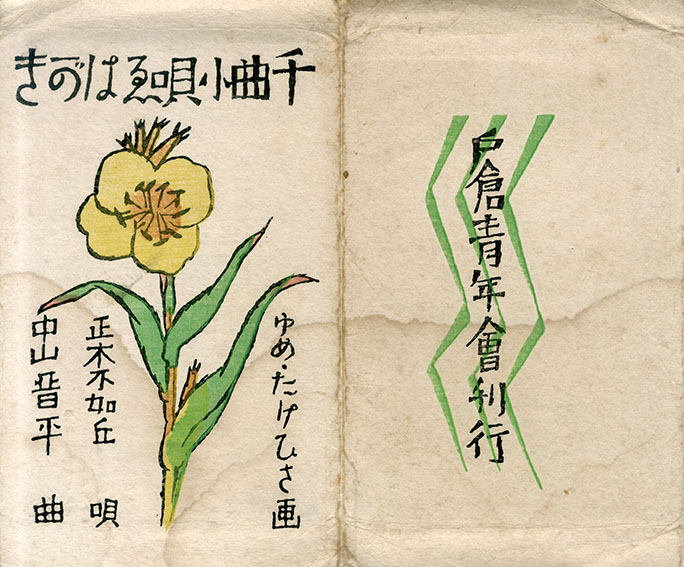 千曲小唄ゑはがき
ゆめ・たけひさ画
正木不如丘 唄
中山晋平 曲
戸倉青年會刊行